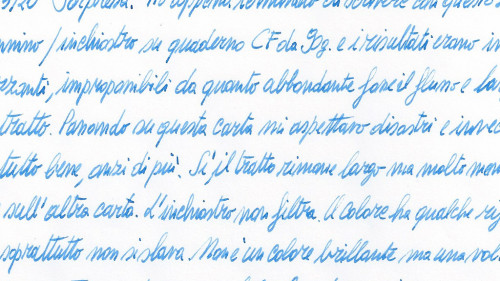 Sorpresa. Ho appena terminato di scrivere con questo
nnino / inchiostro su quaderno CF da 90g. e i risultati erano in
ezanti, improponibili da quanto abbondante fosse il flusso e lar
tratto. Passando su questa carta mi aspettavo disastri e invece
tutto bene, anzi di più. Sì, il tratto rimane largo ma molto meno
sull'altra carta. L'inchiostro non filtra. Il colore ha qualche ri
soprattutto non si slava. Non è un colore brillante ma una vol